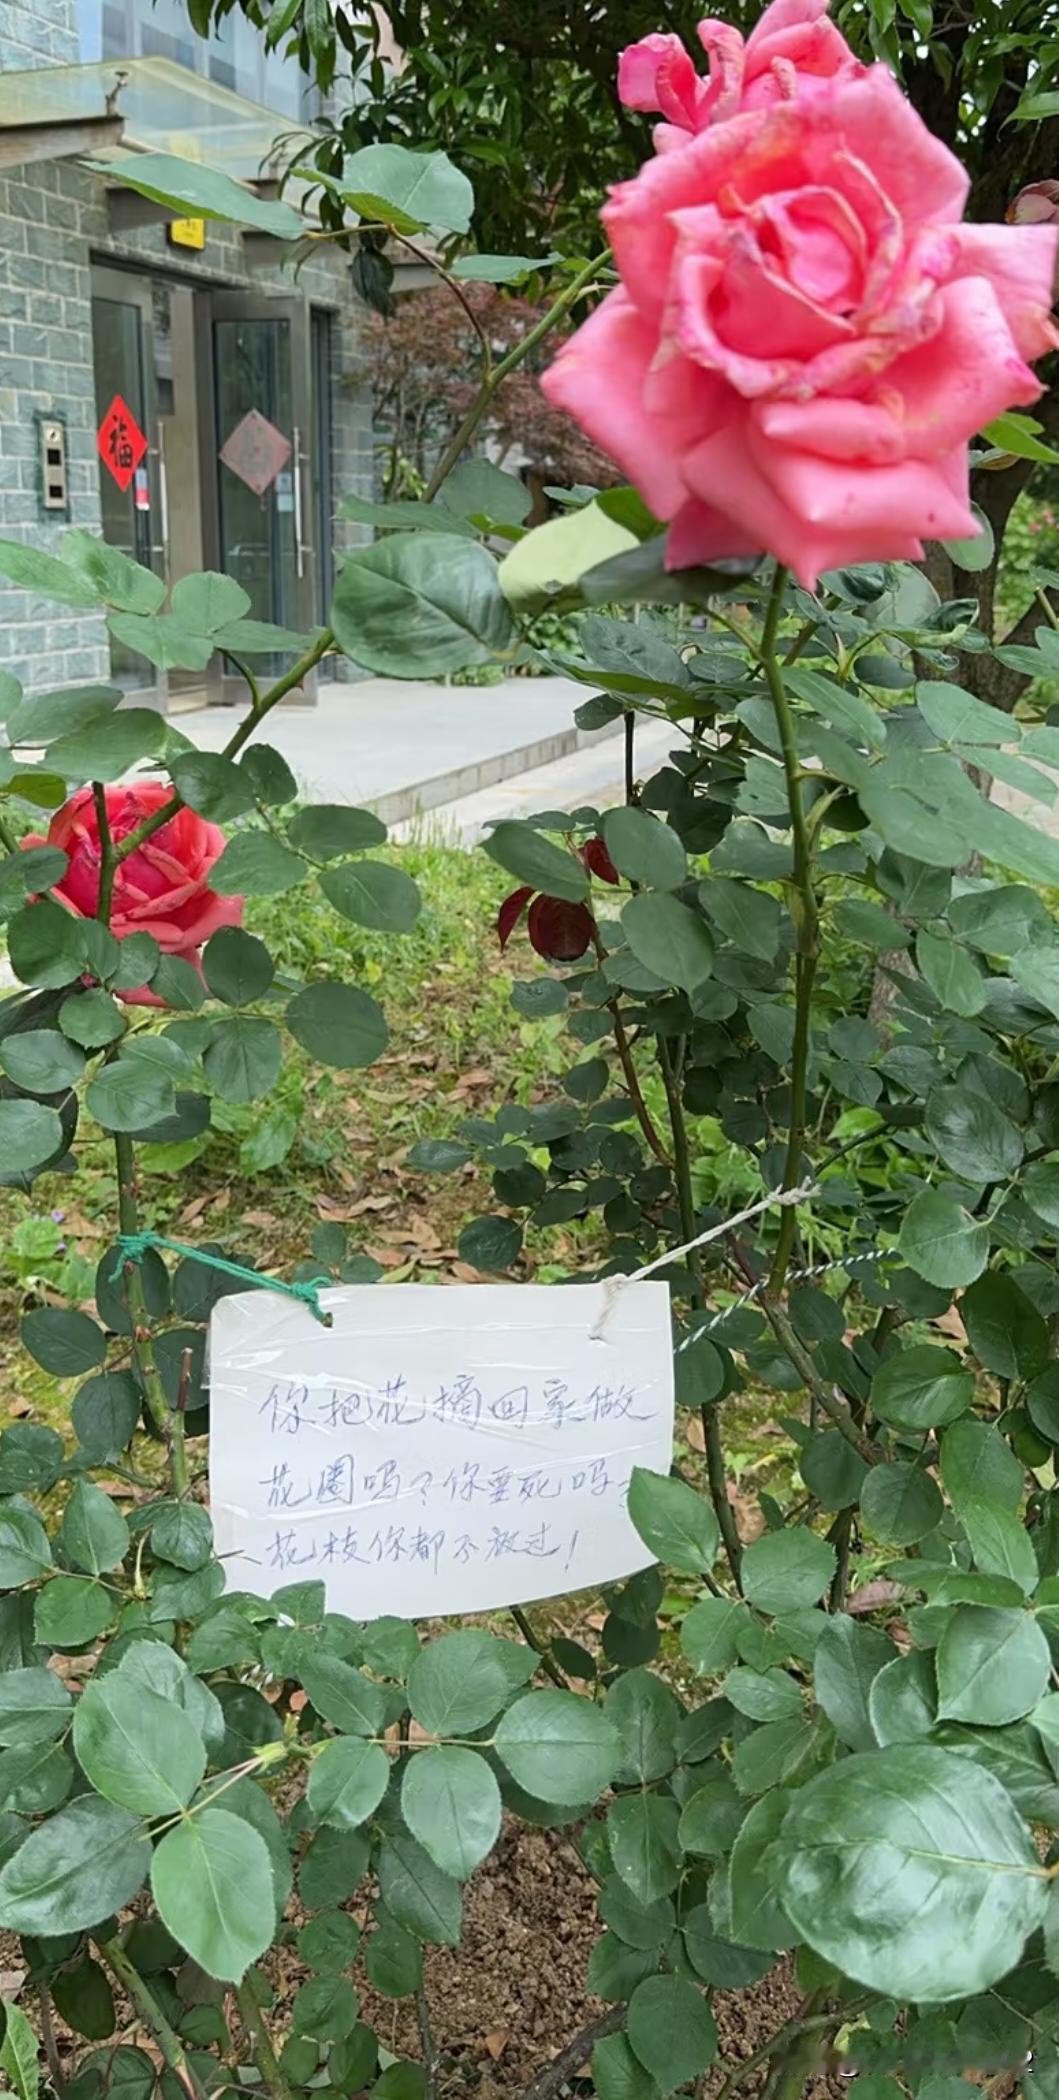 福
你把花摘回家做
花圈吗？你要死吗？
花枝你都不放过！